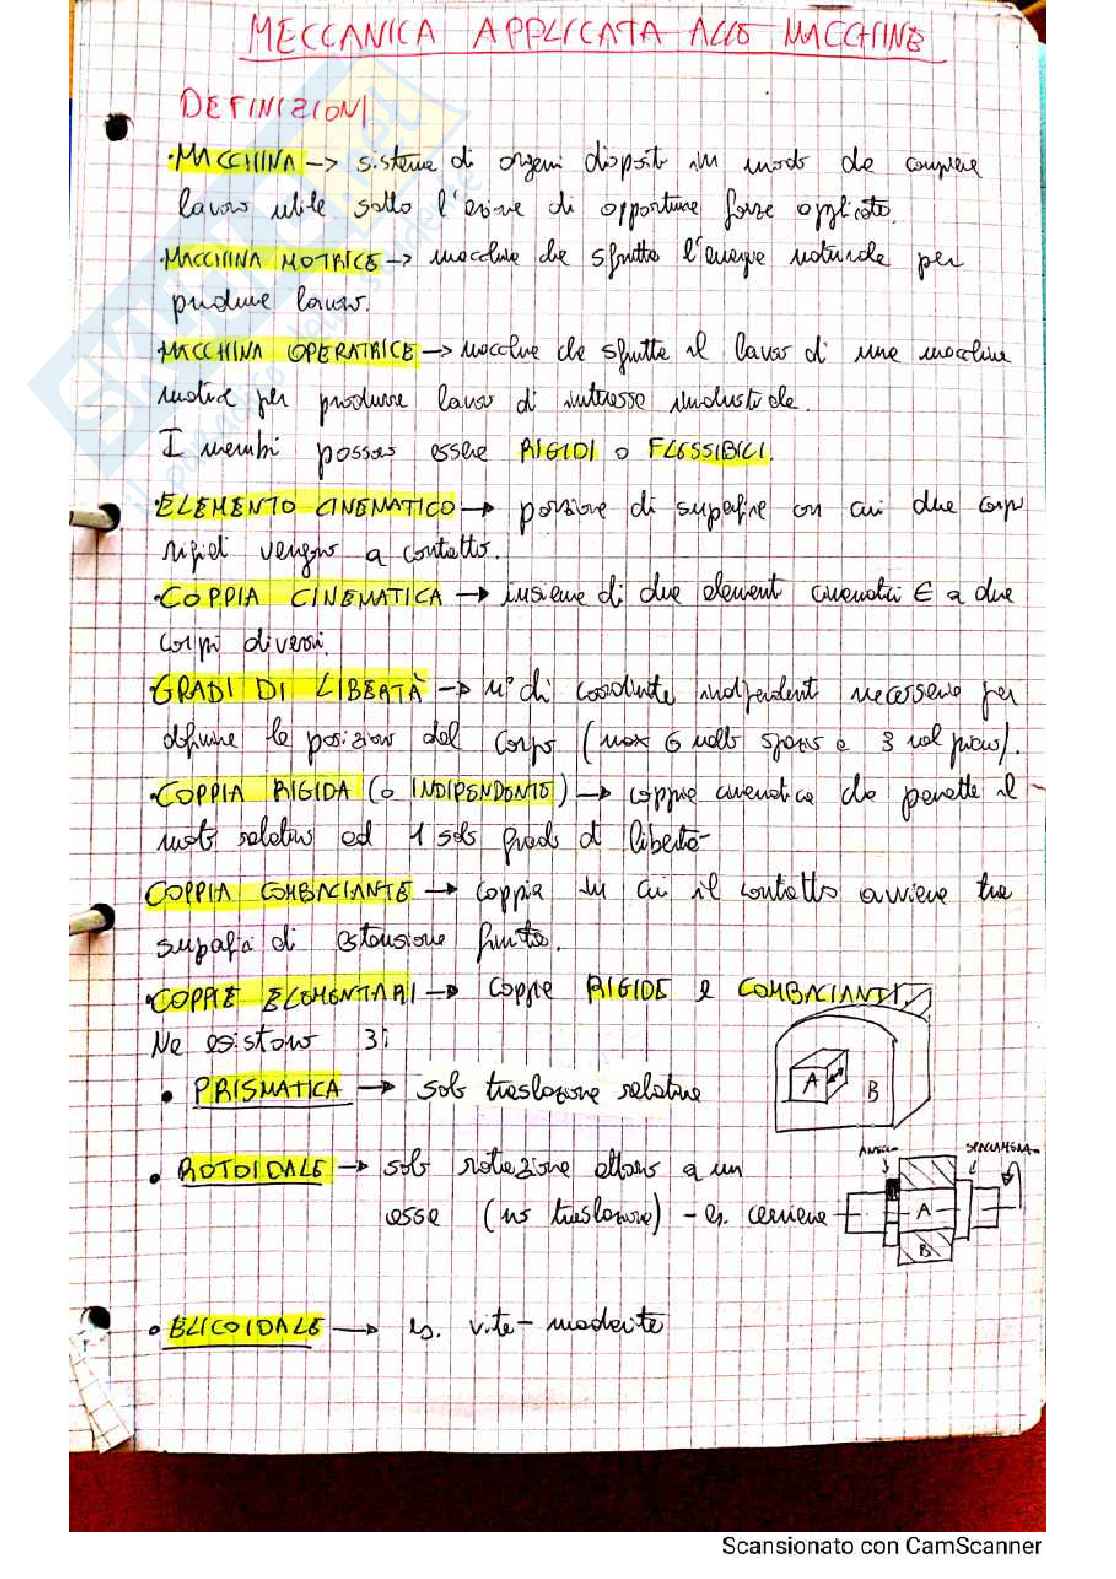 MECCANICA APPLICATA ALLE MACCHINE
DEFINIZIONI
·MACCHINA -> sistema di organi disposti in modo da compiere
lavoro utile sotto l'azione di opportune forze applicate.
·MACCHINA MOTRICE -> macchina che sfrutta l'energia naturale per
produrre lavoro.
·MACCHINA OPERATRICE -> macchina che sfrutta il lavoro di una macchina
motrice per produrre lavoro di interesse industriale.
I membri possono essere RIGIDI o FLESSIBILI.
·ELEMENTO CINEMATICO -> porzione di superficie con cui due corpi
rigidi vengono a contatto.
·COPPIA CINEMATICA -> insieme di due elementi cinematici ∈ a due
corpi diversi.
GRADI DI LIBERTÀ -> n° di coordinate indipendenti necessarie per
definire la posizione del corpo (max 6 nello spazio e 3 nel piano).
·COPPIA RIGIDA (o INDIPENDENTE) -> coppia cinematica che permette il
moto relativo ad 1 solo grado di libertà
COPPIA COMBACIANTE -> coppia in cui il contatto avviene tra
superfici di estensione finita.
·COPPIE ELEMENTARI -> coppie RIGIDE e COMBACIANTI
Ne esistono 3:
A B
• PRISMATICA -> solo traslazione relativa
• ROTOIDALE -> solo rotazione attorno a un
asse (no traslazione) - es. cerniera
SPALLAMENTO
A
B
• ELICOIDALE -> es. vite-madrevite
Scansionato con CamScanner